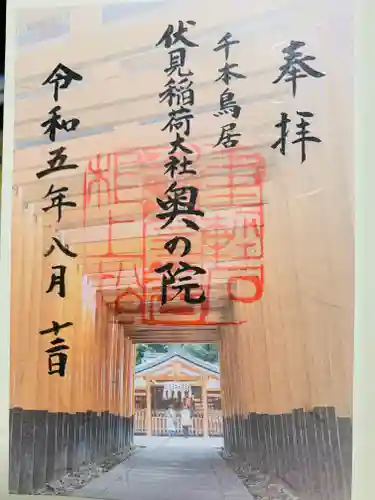 奉拝
千本鳥居
伏見稲荷大社
奥の院
令和五年八月十二日